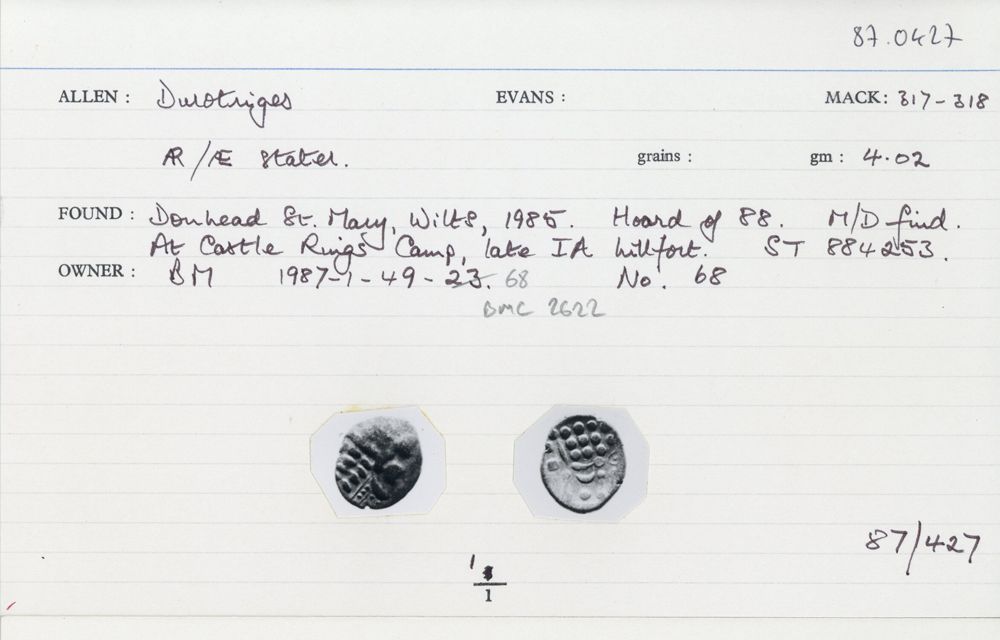 87.0427
ALLEN : Durotriges EVANS : MACK: 317-318
AR/Æ stater. grains : gm : 4.02
FOUND : Donhead St. Mary, Wilts, 1985. Hoard of 88. M/D find.
At Castle Rings Camp, late IA hillfort. ST 884253.
OWNER : BM 1987-1-49-23. 68 No. 68
BMC 2622
87/427
1
1